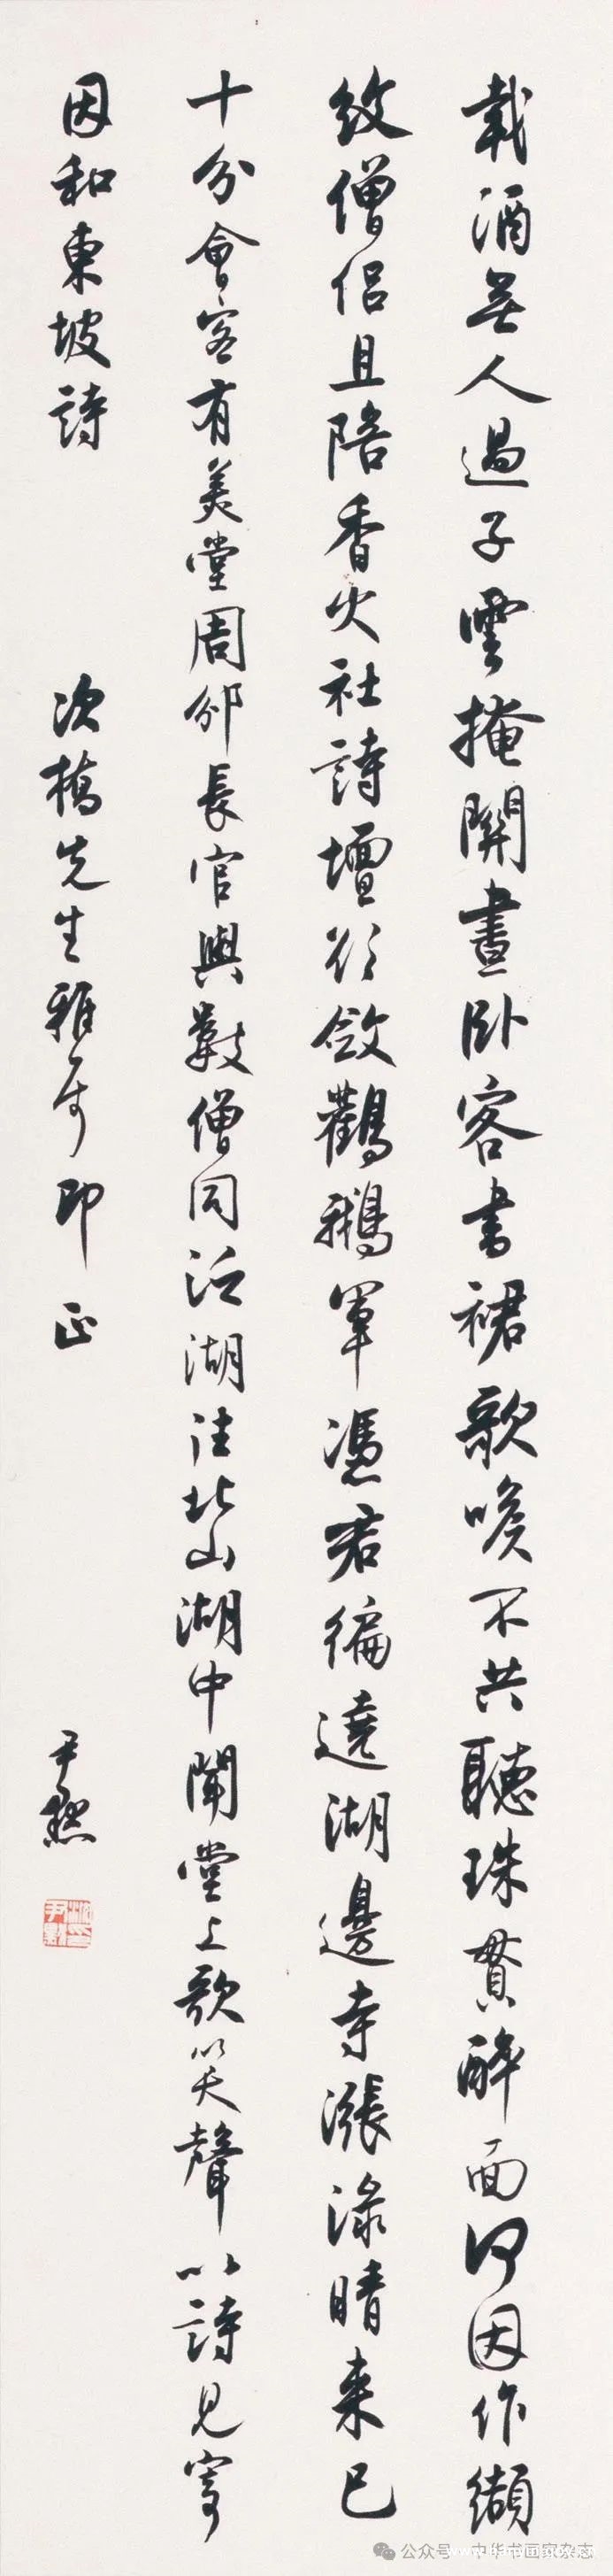 載酒無人過子雲掩關晝卧客書裙歌喉不共聽珠貫醉面何因作纈
紋僧侣且陪香火社詩壇欲斂鸛鵝軍憑君徧遶湖邊寺漲渌晴来已
十分會客有美堂周邠長官與數僧同泛湖往北山湖中聞堂上歌笑聲以詩見寄
因和東坡詩
次橋先生雅属即正
尹默
公众号·中华书画家杂志